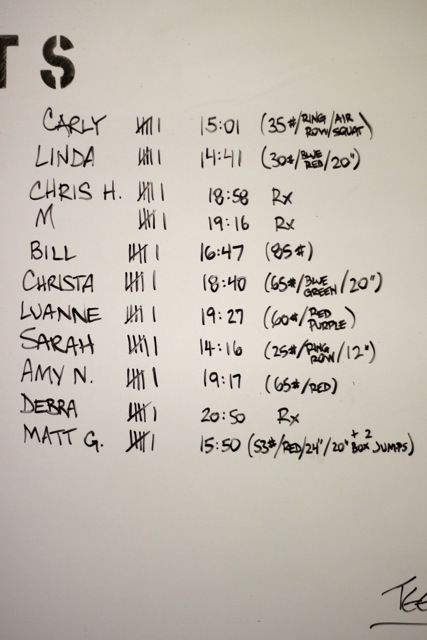 TS
CARLY 𝍸 I 15:01 (35#/RING ROW/AIR SQUAT)
LINDA 𝍸 I 14:41 (30#/BLUE RED/20")
CHRIS H. 𝍸 I 18:58 Rx
M 𝍸 I 19:16 Rx
BILL 𝍸 I 16:47 (85#)
CHRISTA 𝍸 I 18:40 (65#/BLUE GREEN/20")
LUANNE 𝍸 I 19:27 (60#/RED PURPLE)
SARAH 𝍸 I 14:16 (25#/RING ROW/12")
AMY N. 𝍸 I 19:17 (65#/RED)
DEBRA 𝍸 I 20:50 Rx
MATT G. 𝍸 I 15:50 (53#/RED/24"/20" + 2 BOX JUMPS)
TEE